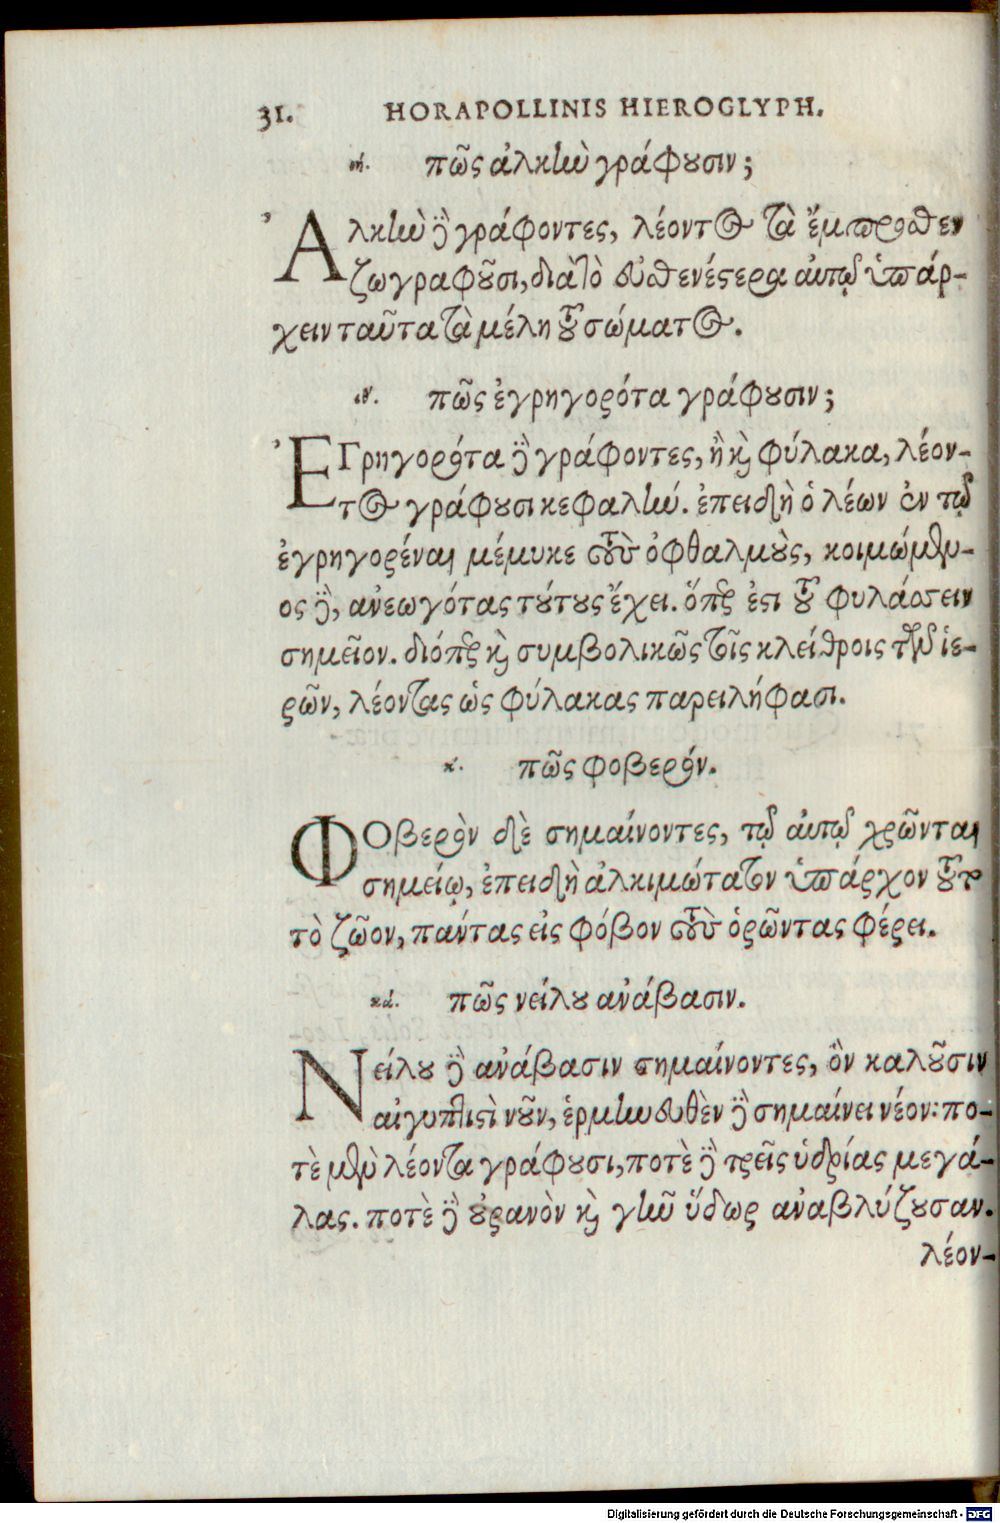 31. HORAPOLLINIS HIEROGLYPH.
ιή. πῶς ἀλκὴν γράφουσιν;
Ἀλκὴν δὲ γράφοντες, λέοντος τὰ ἔμπροσθεν
ζωγραφοῦσι, διὰ τὸ εὐσθενέστερα αὐτῷ ὑπάρ-
χειν ταῦτα τὰ μέλη τοῦ σώματος.
ιθ'. πῶς ἐγρηγορότα γράφουσιν;
Ἐγρηγορότα δὲ γράφοντες, ἢ καὶ φύλακα, λέον-
τος γράφουσι κεφαλήν. ἐπειδὴ ὁ λέων ἐν τῷ
ἐγρηγορέναι μέμυκε τοὺς ὀφθαλμοὺς, κοιμώμεν-
ος δὲ, ἀνεωγότας τούτους ἔχει. ὅπερ ἐστι τοῦ φυλάσσειν
σημεῖον. διόπερ καὶ συμβολικῶς τοῖς κλείθροις τῶν ἱε-
ρῶν, λέοντας ὡς φύλακας παρειλήφασι.
κ'. πῶς φοβερόν.
Φοβερὸν δὲ σημαίνοντες, τῷ αὐτῷ χρῶνται
σημείῳ, ἐπειδὴ ἀλκιμώτατον ὑπάρχον τοῦτο
τὸ ζῶον, πάντας εἰς φόβον τοὺς ὁρῶντας φέρει.
κά. πῶς νείλου ἀνάβασιν.
Νείλου δὲ ἀνάβασιν σημαίνοντες, ὃν καλοῦσιν
αἰγυπτιστὶ νοῦν, ἑρμηνευθὲν δὲ σημαίνει νέον: πο-
τὲ μὲν λέοντα γράφουσι, ποτὲ δὲ τρεῖς ὑδρίας μεγά-
λας. ποτὲ δὲ οὐρανὸν καὶ γῆν ὕδωρ ἀναβλύζουσαν.
λέον-
Digitalisierung gefördert durch die Deutsche Forschungsgemeinschaft - DFG